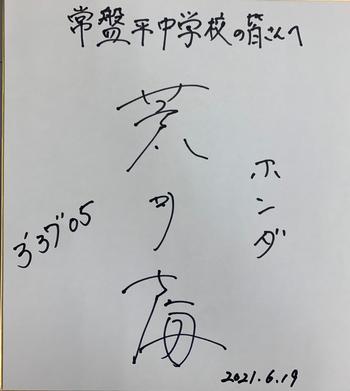 常盤平中学校の皆さんへ
ホンダ
3'37"05
2021.6.19